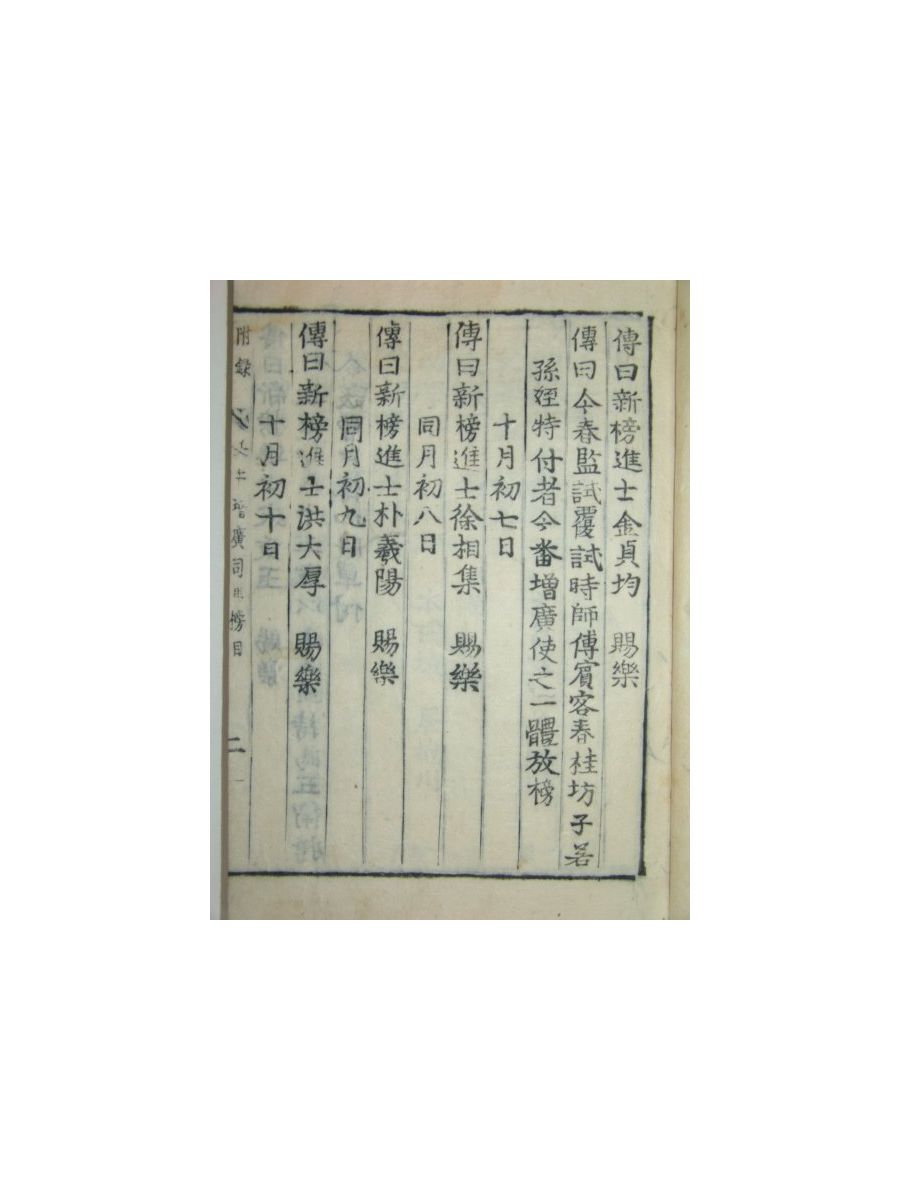 傳曰新榜進士金貞均 賜樂
傳曰今春監試覆試時師傅賓客春桂坊子若
孫姪特付者今番增廣使之一體放榜
十月初七日
傳曰新榜進士徐相集 賜樂
同月初八日
傳曰新榜進士朴羲陽 賜樂
同月初九日
傳曰新榜進士洪大厚 賜樂
十月初十日
附錄 增廣司馬榜目 二